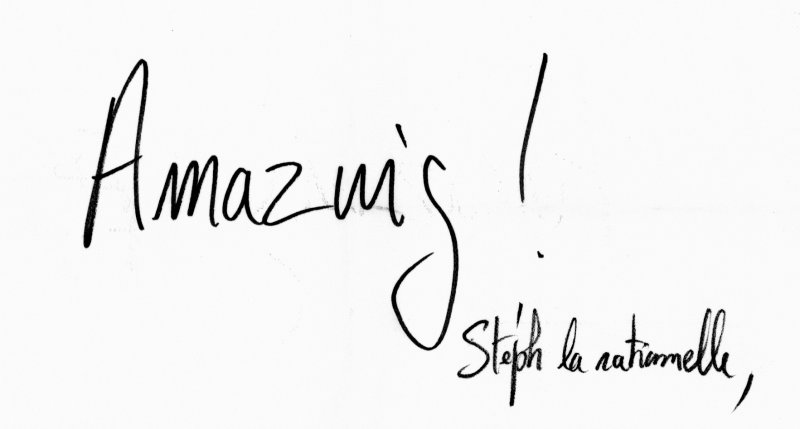 Amazing !
Stéph la rationnelle,